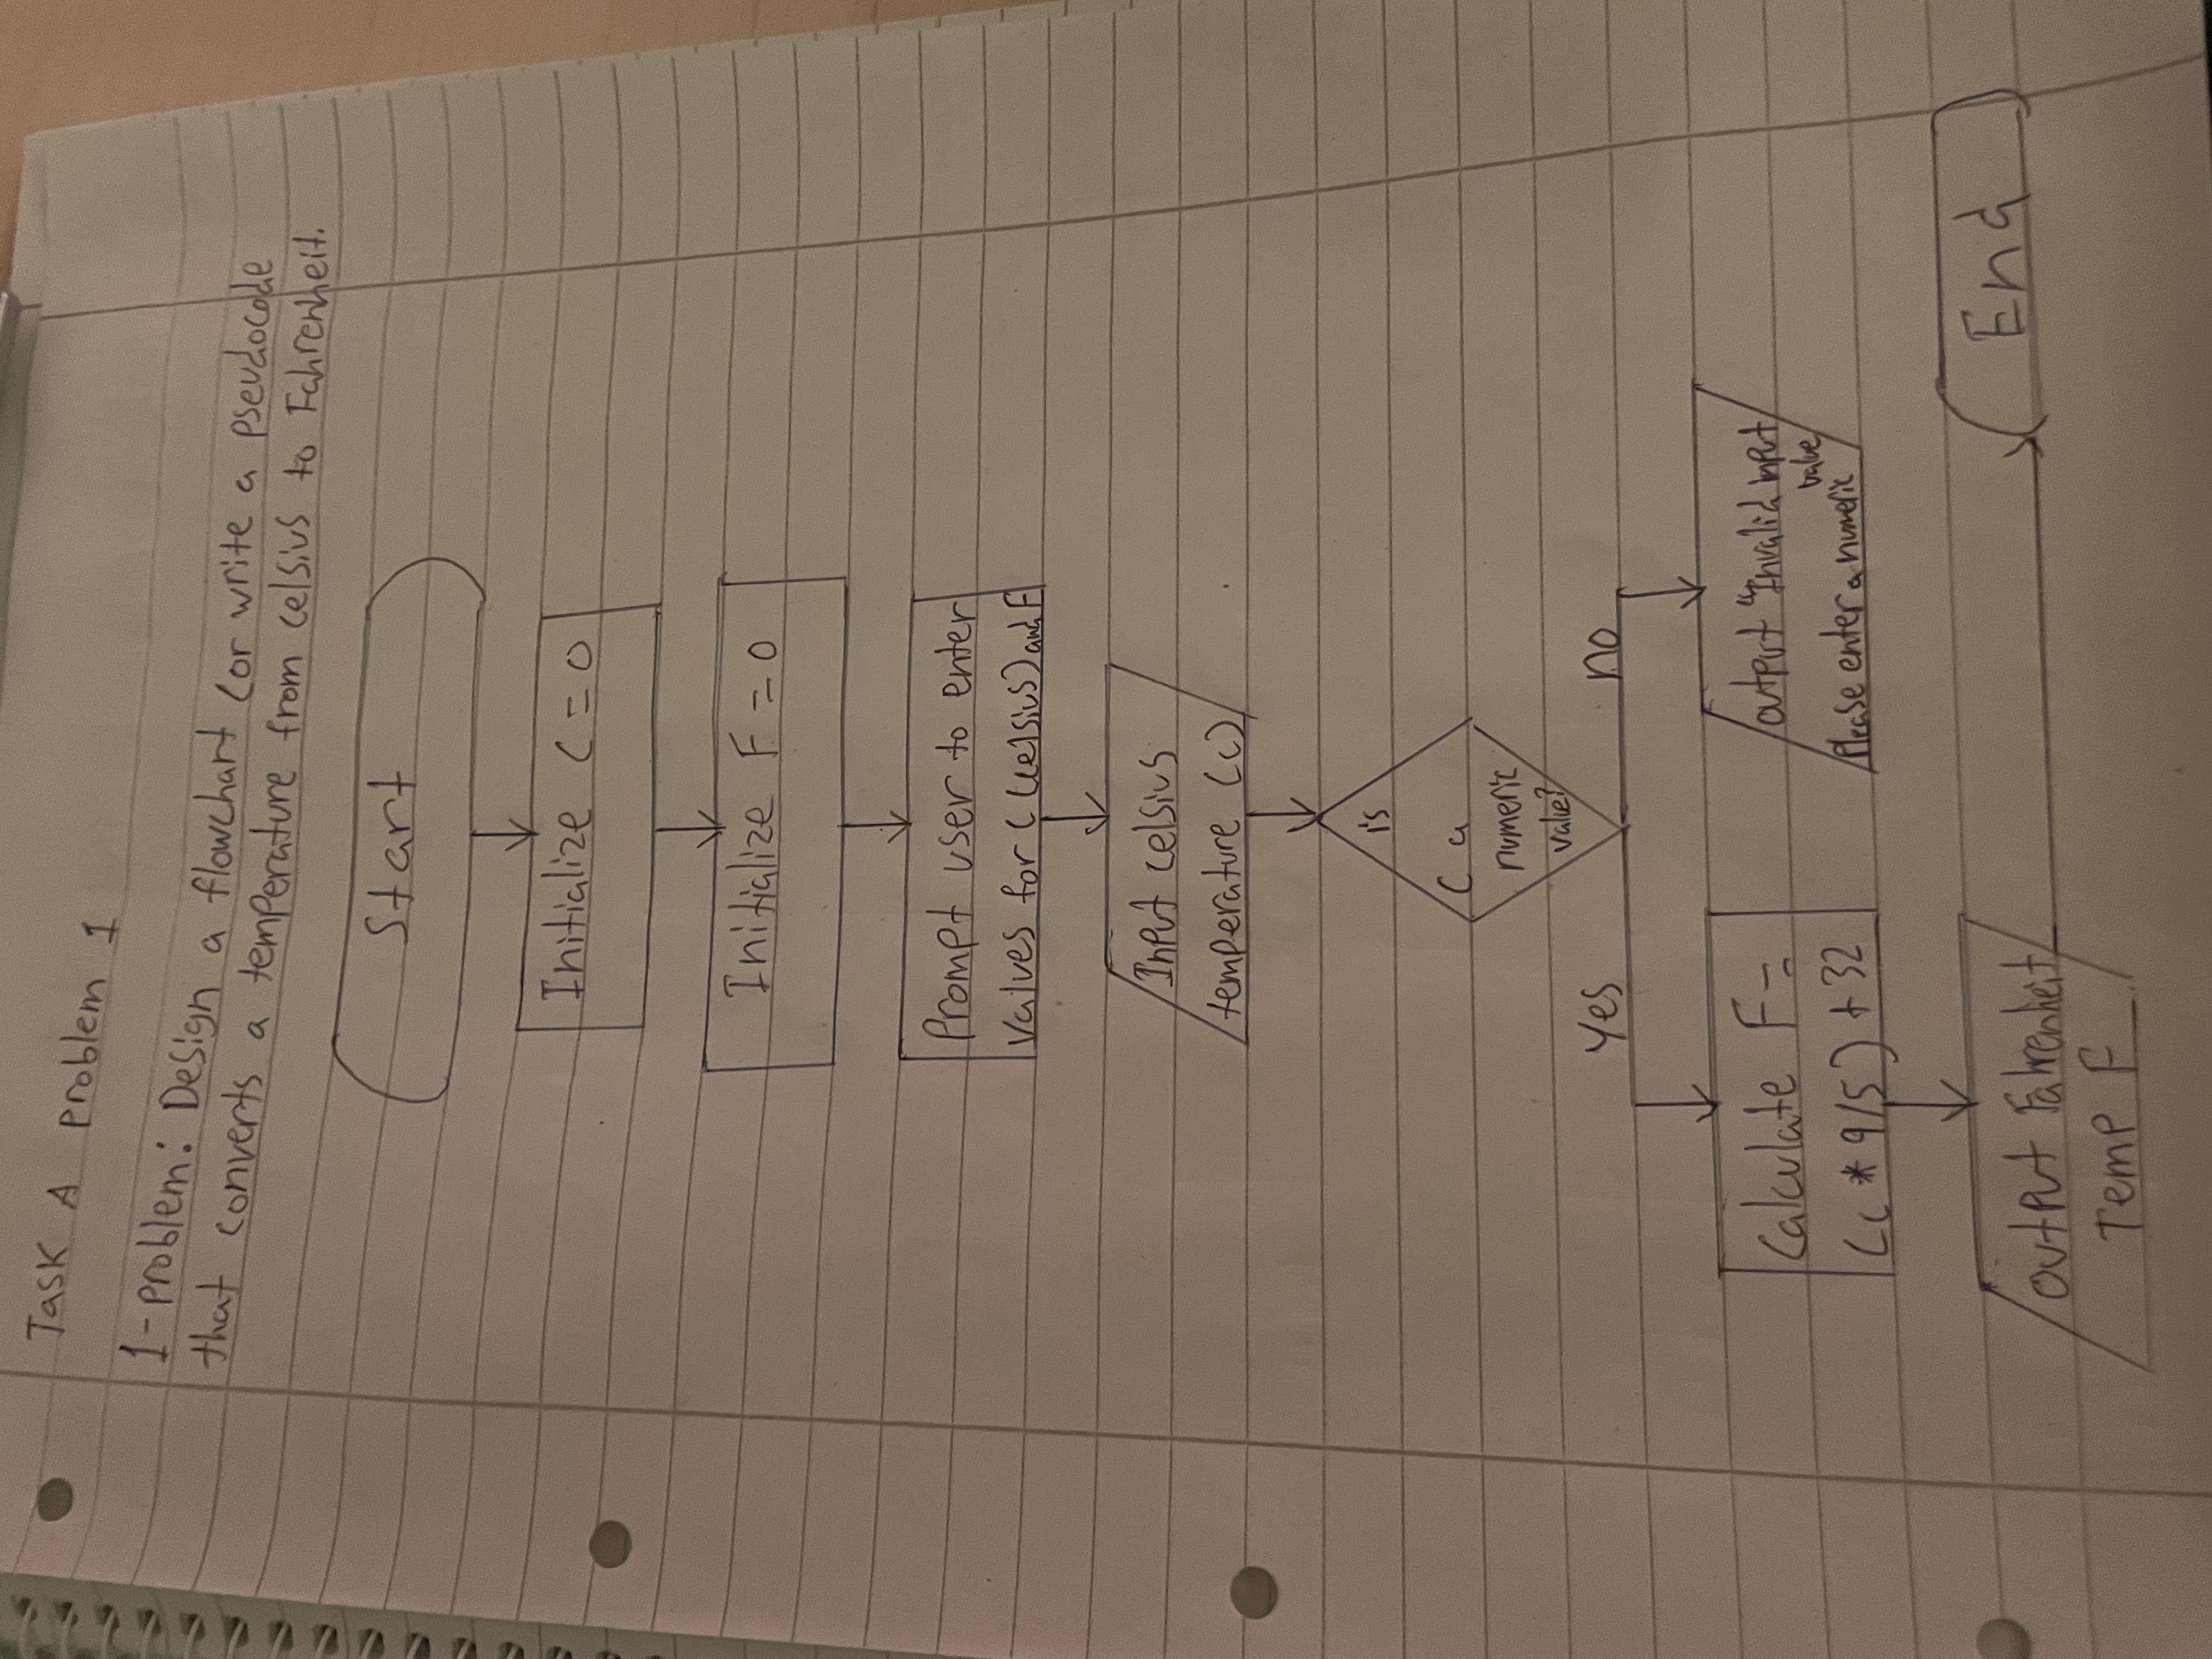 Task A problem 1
1-problem: Design a flowchart (or write a pseudocode
that converts a temperature from celsius to Fahrenheit.
Start
Initialize C = 0
Initialize F = 0
Prompt user to enter
values for C (celsius) and F
Input celsius
temperature (c)
is
C a
numeric
value?
Yes
no
Calculate F =
(c * 9/5) + 32
output "Invalid input
value
Please enter a numeric
Output Fahrenheit
Temp F
End